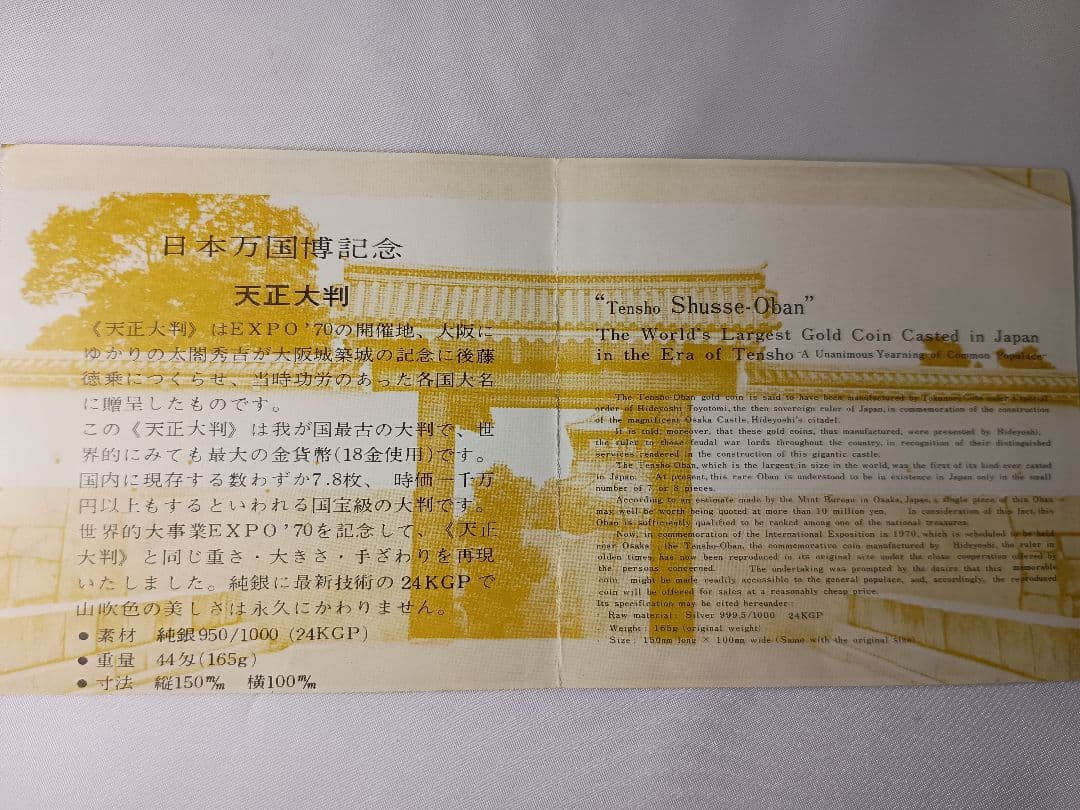 日本万国博記念
天正大判
《天正大判》はEXPO'70の開催地、大阪に
ゆかりの太閤秀吉が大阪城築城の記念に後藤
徳乗につくらせ、当時功労のあった各国大名
に贈呈したものです。
この《天正大判》は我が国最古の大判で、世
界的にみても最大の金貨幣(18金使用)です。
国内に現存する数わずか7.8枚、時価一千万
円以上もするといわれる国宝級の大判です。
世界的大事業EXPO'70を記念して、《天正
大判》と同じ重さ・大きさ・手ざわりを再現
いたしました。純銀に最新技術の24KGPで
山吹色の美しさは永久にかわりません。
● 素材 純銀950/1000(24KGP)
● 重量 44匁(165g)
● 寸法 縦150㎜ 横100㎜
"Tensho Shusse-Oban"
The World's Largest Gold Coin Casted in Japan
in the Era of Tensho -A Unanimous Yearning of Common Populace-
The Tensho-Oban gold coin is said to have been manufactured by
order of Hideyoshi Toyotomi, the then sovereign ruler of Japan, in commemoration of the construction
of the magnificent Osaka Castle, Hideyoshi's citadel.
It is told, moreover, that these gold coins, thus manufactured, were presented by Hideyoshi,
the ruler to those feudal war lords throughout the country, in recognition of their distinguished
services rendered in the construction of this gigantic castle.
The Tensho-Oban, which is the largest in size in the world, was the first of its kind ever casted
in Japan. At present, this rare Oban is understood to be in existence in Japan only in the small
number of 7 or 8 pieces.
According to an estimate made by the Mint Bureau in Osaka, Japan, a single piece of this Oban
may well be worth being quoted at more than 10 million yen. In consideration of this fact, this
Oban is sufficiently qualified to be ranked among one of the national treasures.
Now, in commemoration of the International Exposition in 1970, which is scheduled to be held
near Osaka, the Tensho-Oban, the commemorative coin manufactured by Hideyoshi, the ruler in
olden times, has now been reproduced in its original size under the close cooperation offered by
the persons concerned. The undertaking was prompted by the desire that this memorable
coin might be made readily accessible to the general populace, and, accordingly, the reproduced
coin will be offered for sales at a reasonably cheap price.
Its specification may be cited hereunder:
Raw material: Silver 999.5/1000 24KGP
Weight: 165g (original weight)
Size: 150mm long × 100mm wide (Same with the original size)